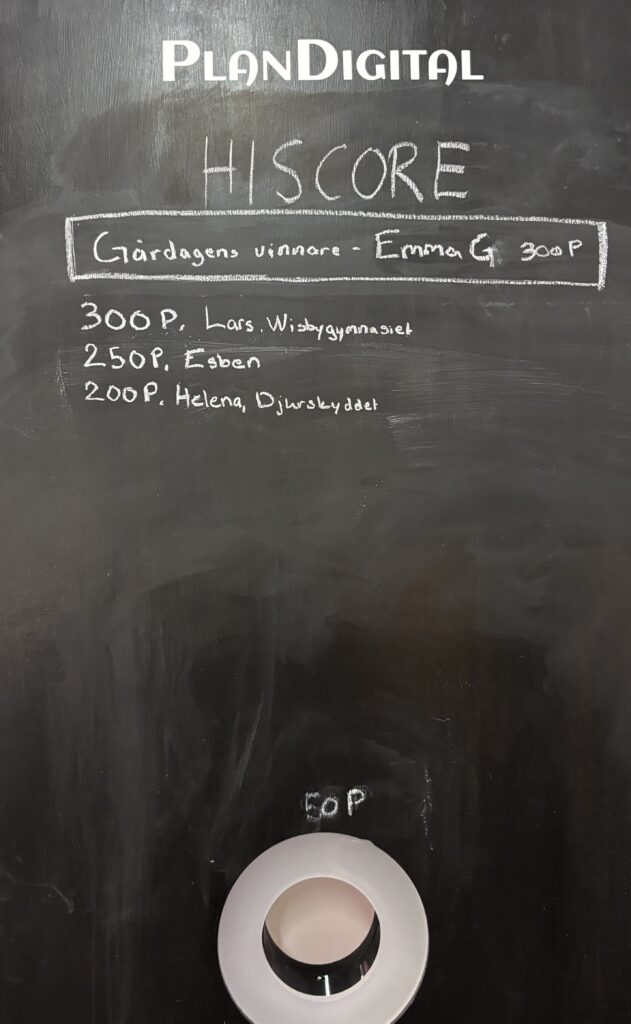 PLANDIGITAL
HISCORE
Gårdagens vinnare - Emma G 300P
300P. Lars. Wisbygymnasiet
250P. Esben
200P. Helena, Djurskyddet
50P